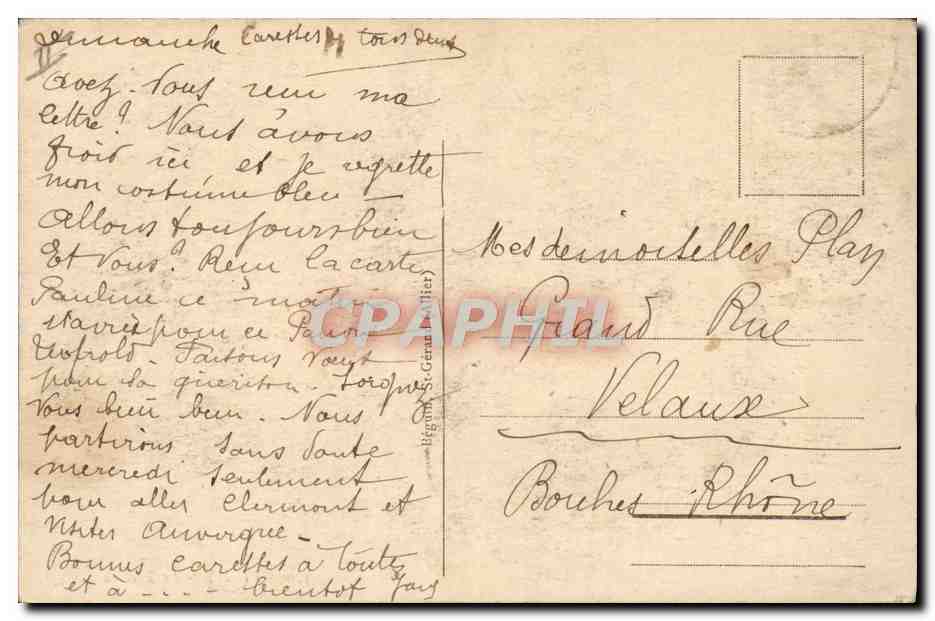 Dimanche Caresses tous deux
II
Avez-Vous reçu ma
lettre? Nous avons
froid ici et je regrette
mon costume bleu —
Allons toujours bien
Et Vous? Reçu la carte
Pauline ce matin
navrés pour ce Pauvre
Léopold. Faisons voeux
pour sa guérison. Soignez
Vous bien bien. Nous
partirons sans doute
mercredi seulement
pour aller Clermont et
visiter Auvergne —
Bonnes caresses à toutes
et à - - - - bientot
Béguin, St-Gérand (Allier)
Mesdemoiselles Play
Grand Rue
Velaux
Bouches Rhône
CPAPHIL